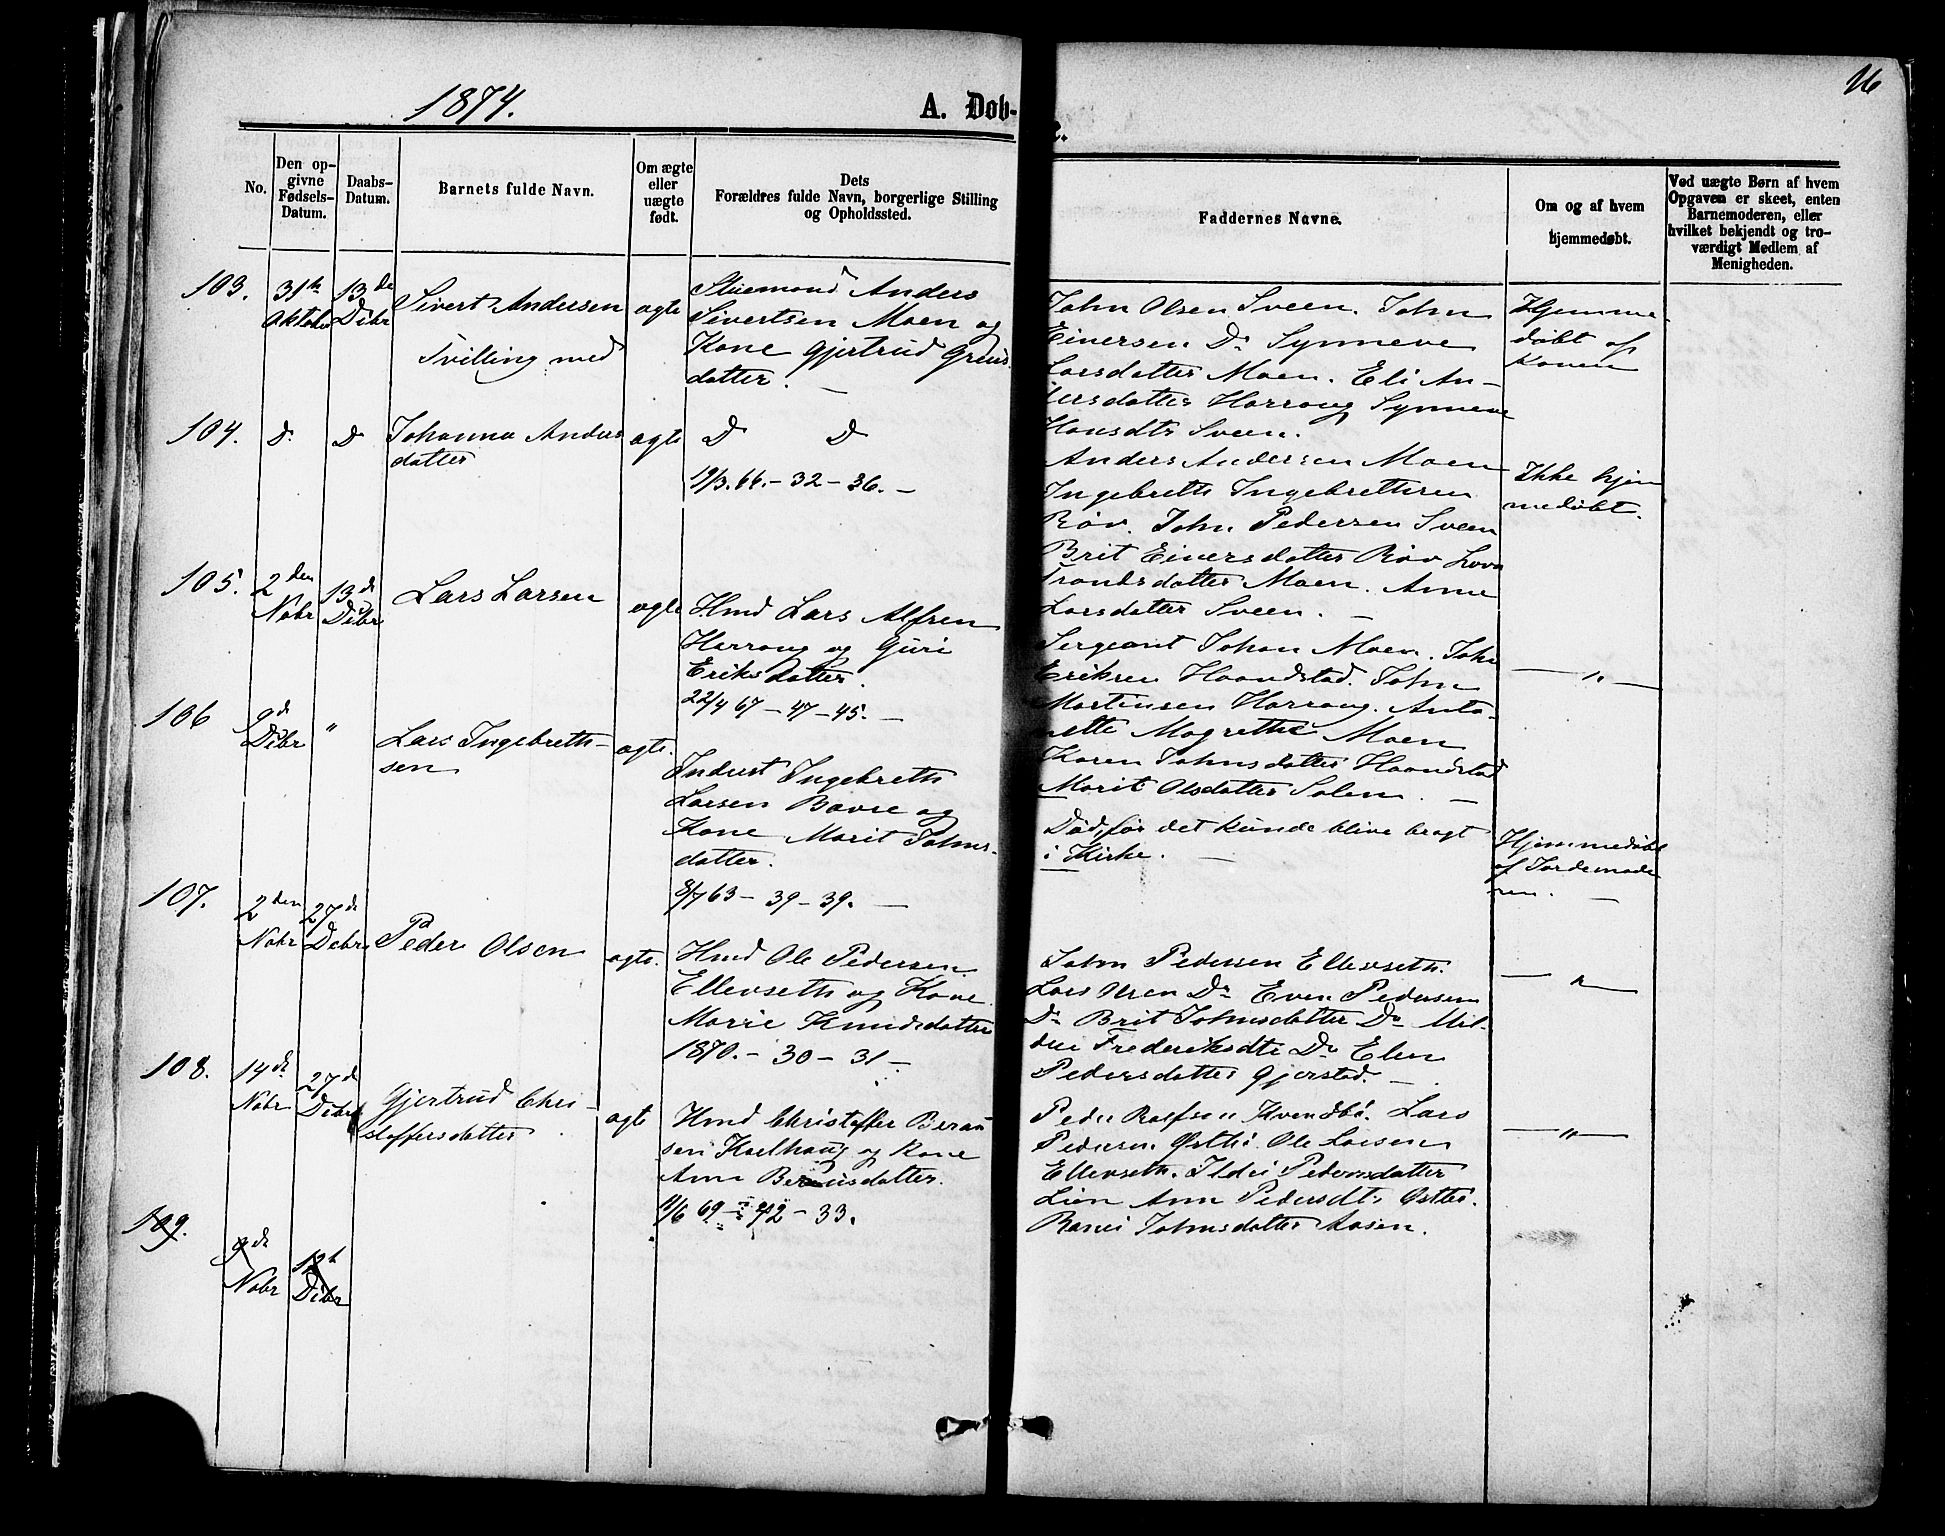 1874.
A. Døb-
e.
16
No.
Den op-
givne
Fødsels-
Datum.
Daabs-
Datum.
Barnets fulde Navn.
Om ægte
eller
uægte
født.
Dets
Forældres fulde Navn, borgerlige Stilling
og Opholdssted.
Faddernes Navne.
Om og af hvem
hjemmedøbt.
Ved uægte Børn af hvem
Opgaven er skeet, enten
Barnemoderen, eller
hvilket bekjendt og tro-
værdigt Medlem af
Menigheden.
103.
31te
Oktobr
13de
Dcbr
Sivert Andersen
Tvilling med
ægte
Stuemand Anders
Sivertsen Moen og
Kone Gjertrud
datter. —
John Olsen Sveen. John
Einersen Do Synneve
Larsdatter Moen. Eli An-
dersdatter Harraug Synneve
Hansdtr Sveen.
Hjemme-
døbt af
Konen
104.
Do
Do
Johanna Anders
datter
ægte
Do Do
19/3.66.- 32 - 36. -
Anders Andersen Moen
Ingebreth Ingebrethsen
Røv. John Pedersen Sveen
Brit Einersdatter Røv
Trondsdatter Moen. Anne
Larsdatter Sveen. —
Ikke hjem
medøbt.
105.
2den
Nobr
13de
Dcbr
Lars Larsen
ægte
Hmd Lars Alfsen
Harraug og Guri
Eriksdatter.
22/4 67 - 47 - 45. -
Sergeant Johan Moen. John
Eriksen Haandstad. John
Martinsen Harraug. Anto-
nette Magrethe Moen
Karen Johnsdatter Haandstad
Marit Olsdatter Solem. —
— " —
106
9de
Dcbr
"
Lars Ingebreth-
sen
ægte.
Inderst Ingebreth
Larsen Bavre og
Kone Marit Johns-
datter.
8/7 63 - 39 - 39. -
Død, før det kunde blive bragt
i Kirke. —
Hjemmedøbt
af Jordemode
ren. —
107.
2den
Nobr
27de
Dcbr
Peder Olsen
ægte.
Hmd Ole Pedersen
Ellevseth og Kone
Marie Knudsdatter
1870. - 30 - 31 -
John Pedersen Ellevseth.
Lars Olsen Do Even Pedersen
Do Brit Johnsdatter Do Mil-
dri Frederiksdtr Do Elen
Pedersdatter Gjerstad. —
— " —
108.
14de
Nobr
27de
Dcbr
Gjertrud Chri-
stoffersdatter
ægte
Hmd Christoffer
sen og Kone
Ann
11/6 69 - 42 - 33.
Peder Kvendbø. Lars
Pedersen Østbø. Ole Larsen
Ellevseth. Ildri Pedersdatter
Lien Ann Pedersdtr Østbø.
Johnsdatter Aasen.
— " —
109.
9de
Nobr
Dcbr